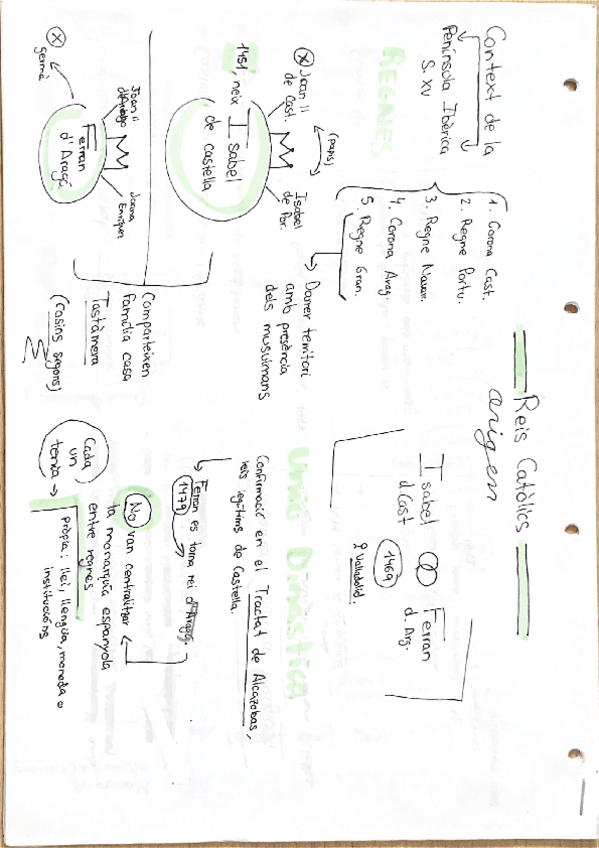 Reis Catòlics
origen
Context de la
Península Ibèrica
S. XV
1. Corona Cast.
2. Regne Portu.
3. Regne Navar.
4. Corona Arag.
5. Regne Gran.
Darrer territori
amb presència
dels musulmans
REGNES
(papis)
X Joan II
de Cast.
Isabel
de Por.
1451, neix Isabel
de castella
Joan II
d'Arago
Joana
Enríquez
Ferran
d'Aragó
X
germà
Comparteixen
família casa
Tastàmera
(cosins segons)
Isabel
d.Cast
Ferran
d. Arg.
1469
Valladolid.
Unió Dinàstica
Confirmació en el Tractat de Alcazobas,
reis legítims de Castella.
Ferran es torna rei d'Arago.
1479
No van centralitzar
la monarquia espanyola
entre regnes
Cada
un
tenia →
pròpia: llei, llengua, moneda o
institucións